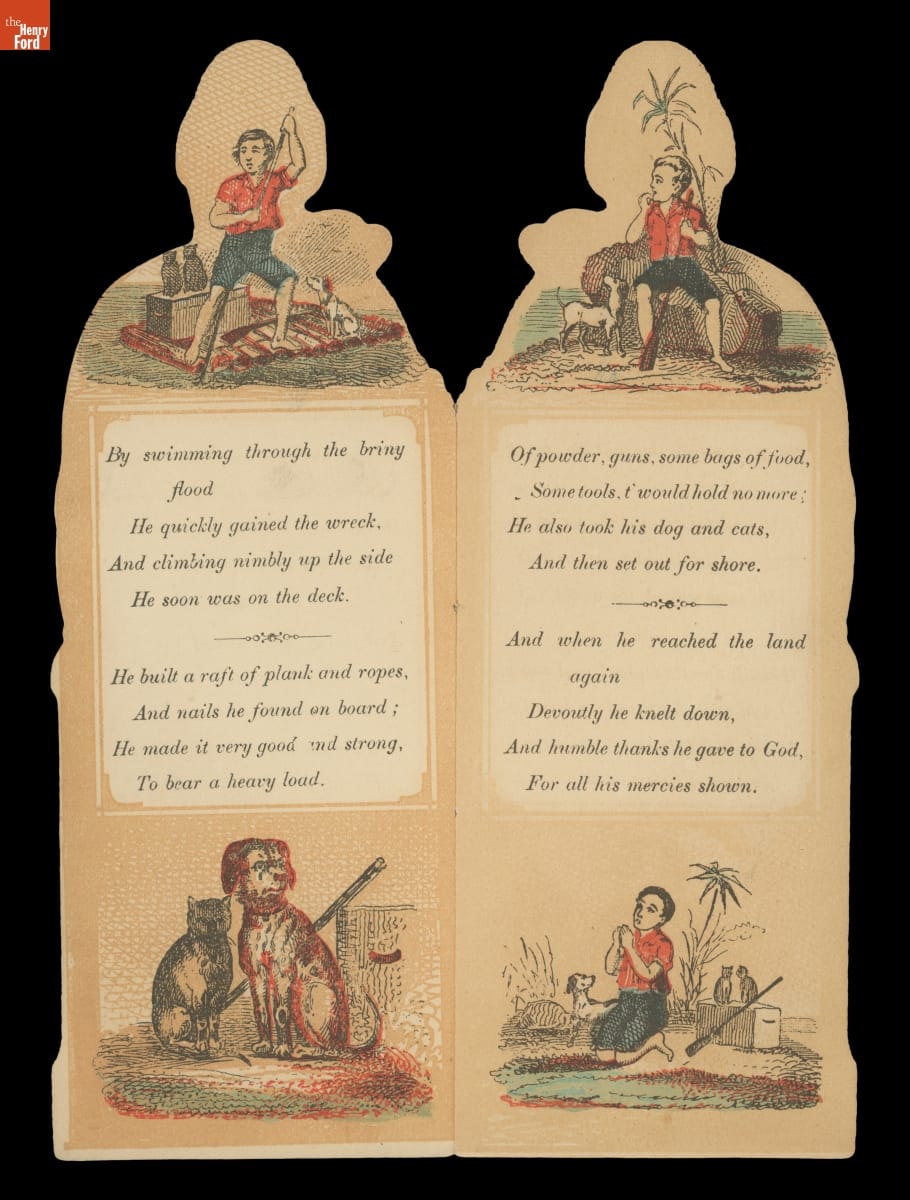 the
Henry
Ford
By swimming through the briny
flood
He quickly gained the wreck,
And climbing nimbly up the side
He soon was on the deck.
He built a raft of plank and ropes,
And nails he found on board ;
He made it very good nd strong,
To bear a heavy load.
Of powder, guns, some bags of food,
Some tools, t' would hold no more ;
He also took his dog and cats,
And then set out for shore.
And when he reached the land
again
Devoutly he knelt down,
And humble thanks he gave to God,
For all his mercies shown.